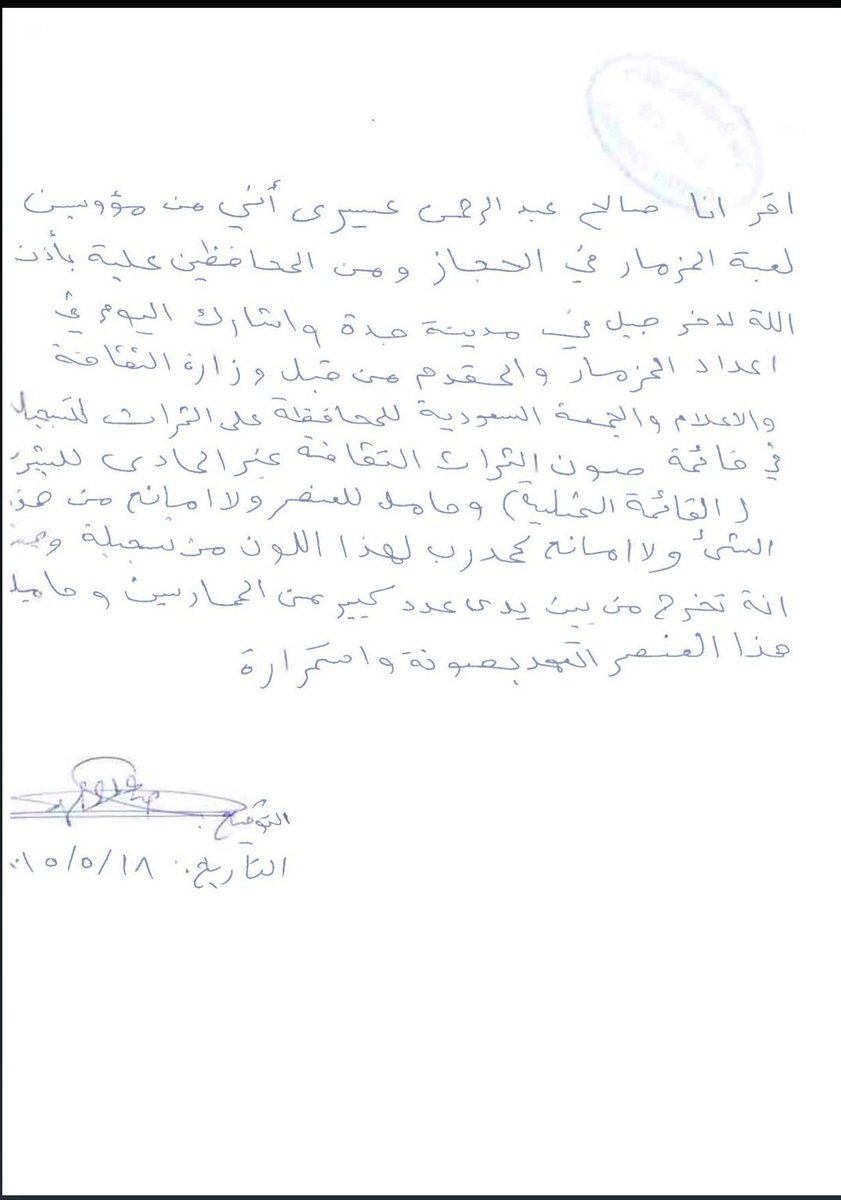 اقر انا صالح عبد الرحمن عسيرى أني من مؤوسين
لعبة المزمار في الحجاز ومن المحافظين علية بأذن
اللة لاخر جيل في مدينة جدة واشارك اليوم في
اعداد المزمار والمقدم من قبل وزارة الثقافة
والاعلام والجمعة السعودية للمحافظة على التراث لتسجيل
في قائمة صون التراث الثقافة غير المادى للبشر
( القائمة التمثلية ) وحامل للعنصر ولا امانع من هذ
الشئ ولا امانع كمدرب لهذا اللون من تسجيلة
انة تخرج من بين يدى عدد كبير من الممارسين وحامل
هذا العنصر اتعهد بصونة واستمرارة
التوقيع :
التاريخ : ١٥/٥/١٨